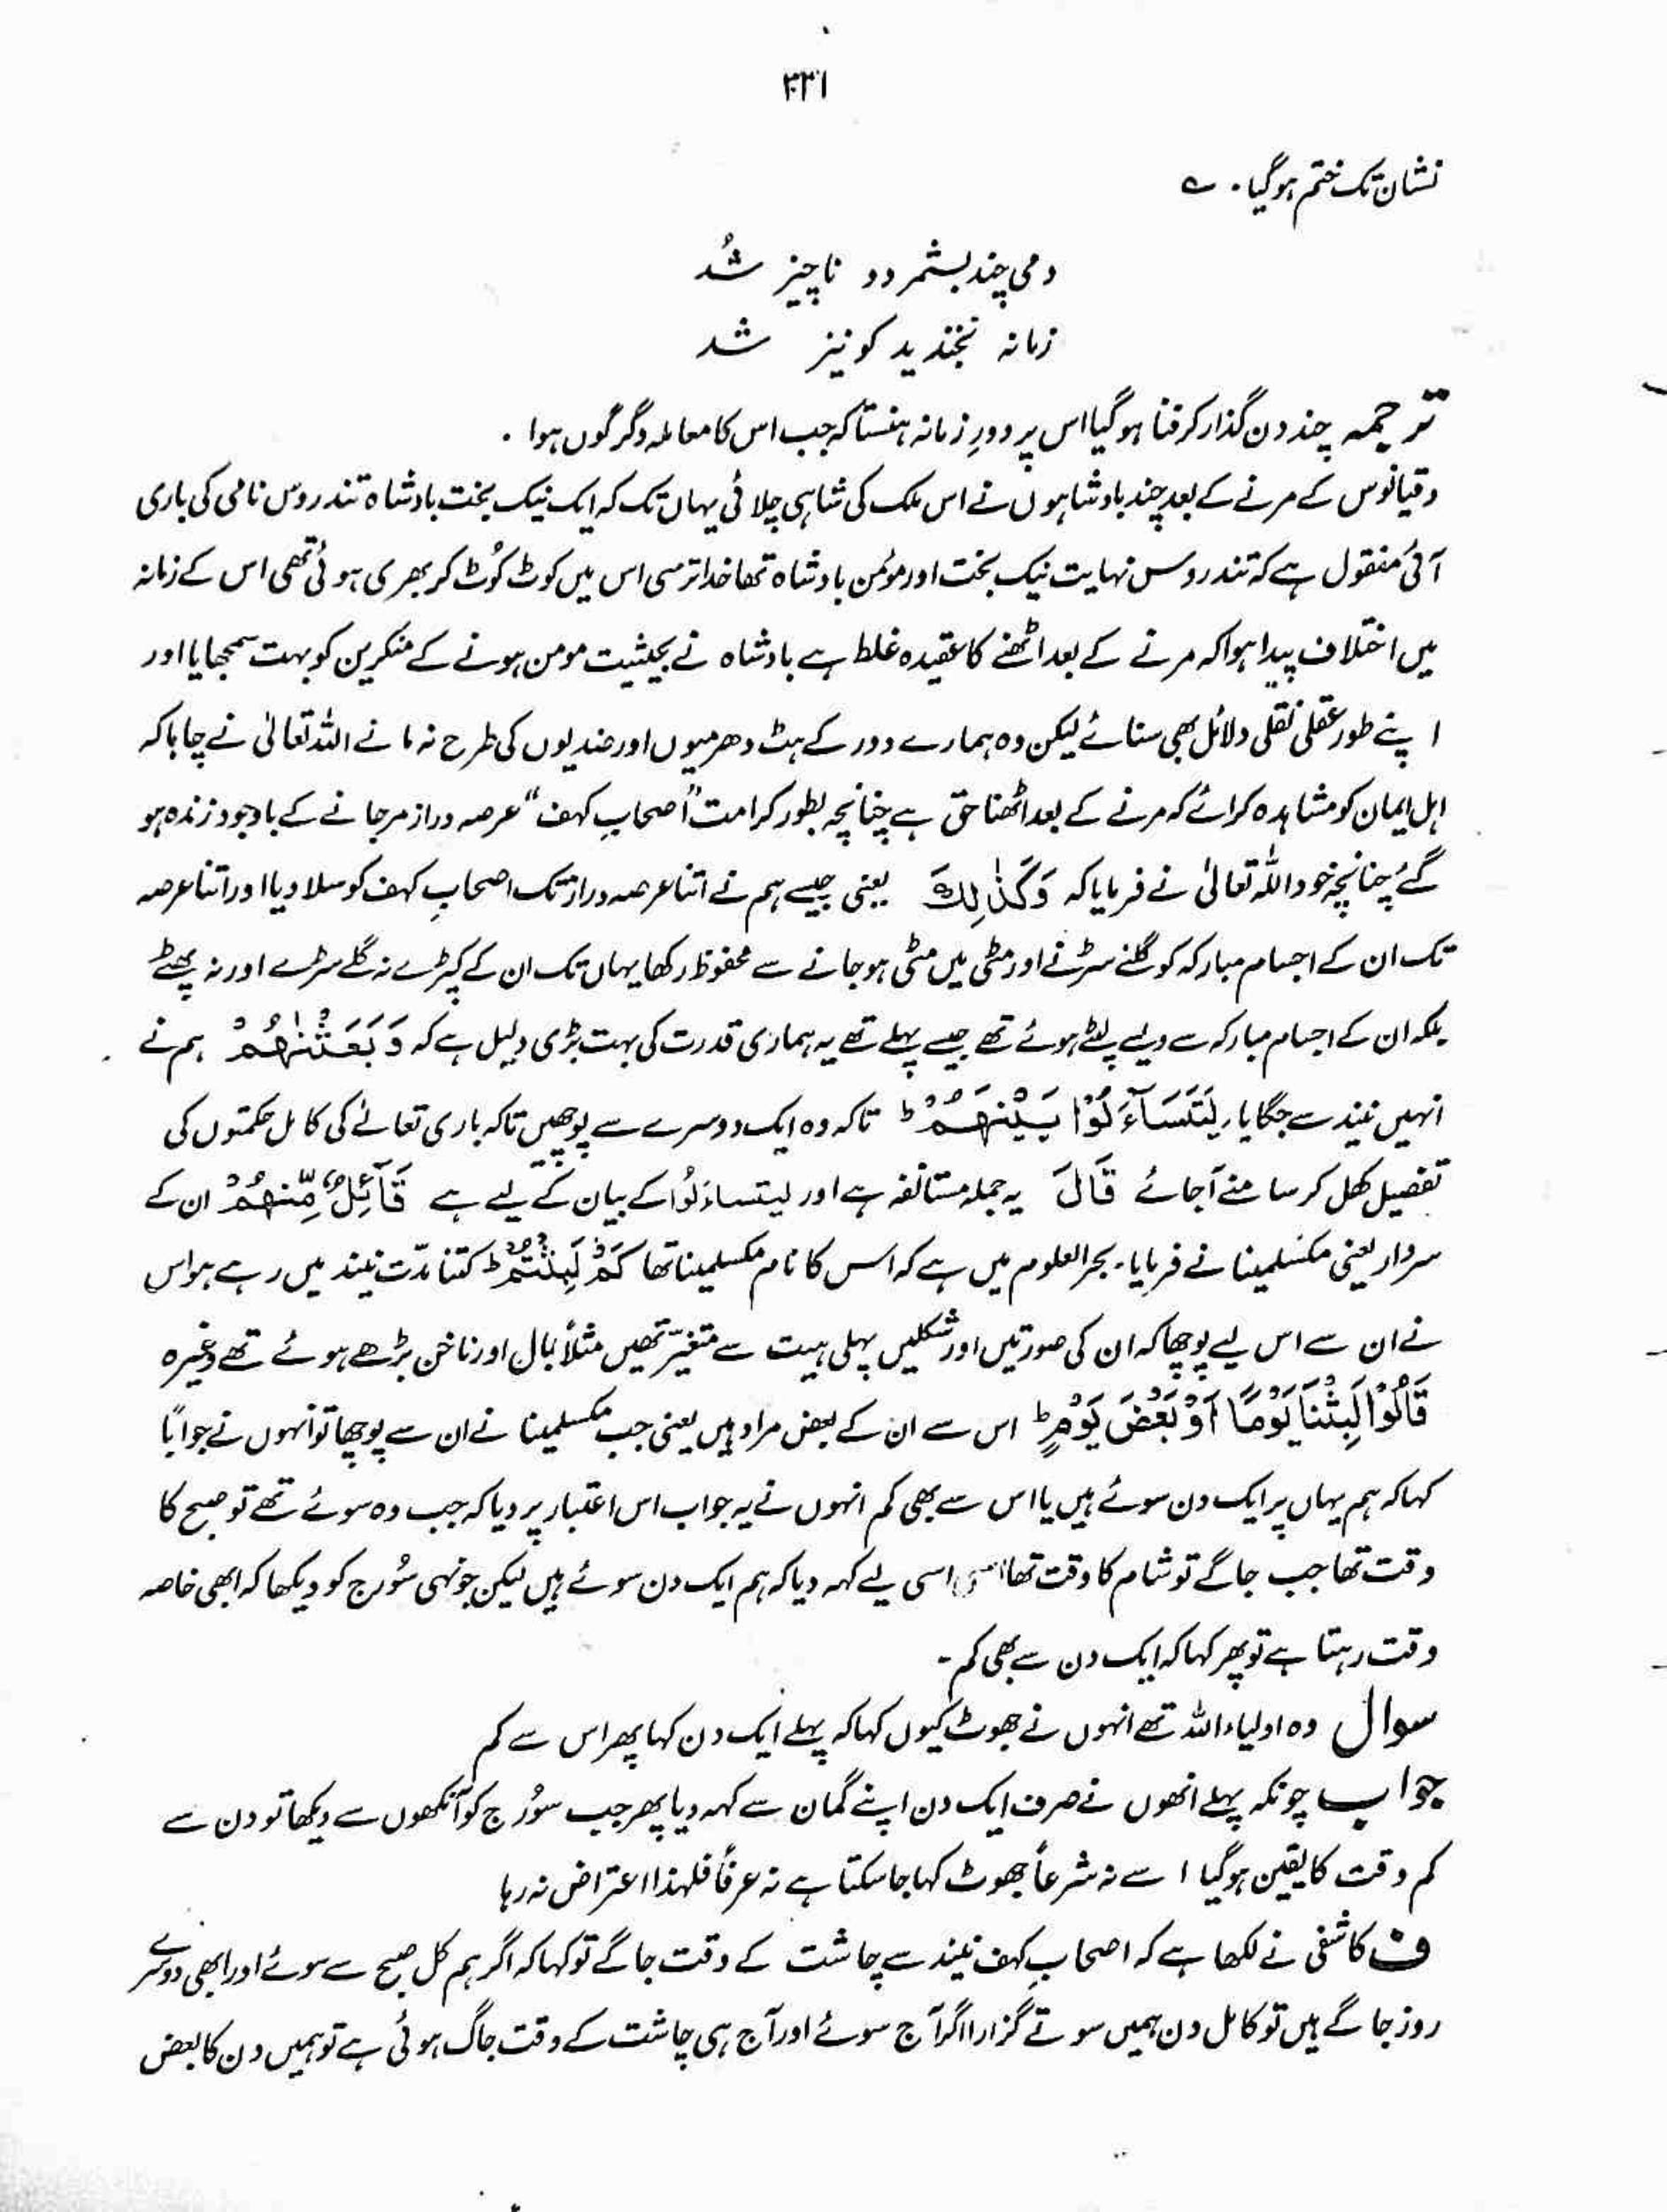 ۳۳۱
نشان تک ختم ہوگیا۔ ے
دمی چند بشمرد و ناچیز شُد
زمانہ بخندید کو نیز شد
ترجمہ چند دن گذار کر فنا ہوگیا اس پر دورِ زمانہ ہنستا کہ جب اس کا معاملہ دگرگوں ہوا ۔
دقیانوس کے مرنے کے بعد چند بادشاہوں نے اس ملک کی شاہی چلائی یہاں تک کہ ایک نیک بخت بادشاہ تندروس نامی کی باری
آئی منقول ہے کہ تندروس نہایت نیک بخت اور مؤمن بادشاہ تھا خدا ترسی اس میں کوٹ کُوٹ کر بھری ہوئی تھی اس کے زمانہ
میں اختلاف پیدا ہوا کہ مرنے کے بعد اٹھنے کا عقیدہ غلط ہے بادشاہ نے بحیثیت مومن ہونے کے منکرین کو بہت سمجھایا اور
اپنے طور عقلی نقلی دلائل بھی سنائے لیکن وہ ہمارے دور کے ہٹ دھرمیوں اور ضدیوں کی طرح نہ مانے اللہ تعالیٰ نے چاہا کہ
اہل ایمان کو مشاہدہ کرائے کہ مرنے کے بعد اٹھنا حق ہے چنانچہ بطور کرامت "اصحابِ کہف" عرصہ دراز مر جانے کے باوجود زندہ ہو
گئے چنانچہ خود اللہ تعالیٰ نے فرمایا کہ وَكَذٰلِكَ یعنی جیسے ہم نے اتنا عرصہ دراز تک اصحابِ کہف کو سلا دیا اور اتنا عرصہ
تک ان کے اجسام مبارکہ کو گلنے سڑنے اور مٹی میں مٹی ہو جانے سے محفوظ رکھا یہاں تک ان کے کپڑے نہ گلے سڑے اور نہ پھٹے
بلکہ ان کے اجسام مبارکہ سے ویسے لپٹے ہوئے تھے جیسے پہلے تھے یہ ہماری قدرت کی بہت بڑی دلیل ہے کہ وَبَعَثْنٰهُمْ ہم نے
انہیں نیند سے جگایا، لِيَتَسَآءَلُوْا بَيْنَهُمْ ط تاکہ وہ ایک دوسرے سے پوچھیں تاکہ باری تعالےٰ کی کامل حکمتوں کی
تفصیل کھل کر سامنے آجائے قَالَ یہ جملہ مستانفہ ہے اور لیتساءَلُوا کے بیان کے لیے ہے قَآئِلٌ مِّنْهُمْ ان کے
سردار یعنی مکسلمینا نے فرمایا۔ بحرالعلوم میں ہے کہ اس کا نام مکسلمینا تھا كَمْ لَبِثْتُمْ ط کتنا مدّت نیند میں رہے ہو اس
نے ان سے اس لیے پوچھا کہ ان کی صورتیں اور شکلیں پہلی ہیت سے متغیّر تھیں مثلاً بال اور ناخن بڑھے ہوئے تھے وغیرہ
قَالُوْا لَبِثْنَا يَوْمًا اَوْ بَعْضَ يَوْمٍ ط اس سے ان کے بعض مراد ہیں یعنی جب مکسلمینا نے ان سے پوچھا تو انہوں نے جوابًا
کہا کہ ہم یہاں پر ایک دن سوئے ہیں یا اس سے بھی کم انہوں نے یہ جواب اس اعتبار پر دیا کہ جب وہ سوئے تھے تو صبح کا
وقت تھا جب جاگے تو شام کا وقت تھا اسی لیے کہہ دیا کہ ہم ایک دن سوئے ہیں لیکن جونہی سُورج کو دیکھا کہ ابھی خاصہ
وقت رہتا ہے تو پھر کہا کہ ایک دن سے بھی کم۔
سوال وہ اولیاء اللہ تھے انہوں نے جھوٹ کیوں کہا کہ پہلے ایک دن کہا پھر اس سے کم
جواب چونکہ پہلے انھوں نے صرف ایک دن اپنے گمان سے کہہ دیا پھر جب سوُرج کو آنکھوں سے دیکھا تو دن سے
کم وقت کا یقین ہوگیا اسے نہ شرعاً جھوٹ کہا جا سکتا ہے نہ عرفاً فلہذا اعتراض نہ رہا
ف کاشفی نے لکھا ہے کہ اصحابِ کہف نیند سے چاشت کے وقت جاگے تو کہا کہ اگر ہم کل صبح سے سوئے اور ابھی دوسرے
روز جاگے ہیں تو کامل دن ہمیں سوتے گزارا اگر آج سوئے اور آج ہی چاشت کے وقت جاگ ہوئی ہے تو ہمیں دن کا بعض